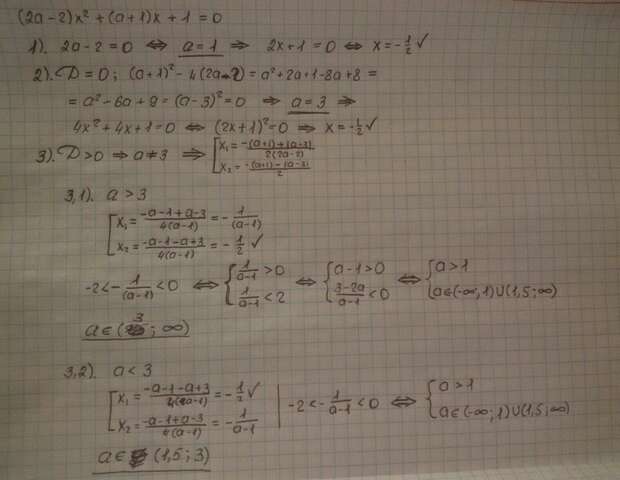 (2a-2)x² + (a+1)x + 1 = 0
1). 2a-2=0 ⇔ a=1 ⇒ 2x+1=0 ⇔ x=-1/2 ✓
2). D=0; (a+1)² - 4(2a-2) = a²+2a+1-8a+8 =
= a²-6a+9 = (a-3)² = 0 ⇒ a=3 ⇒
4x²+4x+1=0 ⇔ (2x+1)²=0 ⇒ x=-1/2 ✓
3). D>0 ⇒ a≠3 ⇒ [ x₁ = (-(a+1)+(a-3))/(2(2a-2))
x₂ = (-(a+1)-(a-3))/2
3,1). a>3
[ x₁ = (-a-1+a-3)/(4(a-1)) = -1/(a-1)
x₂ = (-a-1-a+3)/(4(a-1)) = -1/2 ✓
-2 < -1/(a-1) < 0 ⇔ { 1/(a-1) > 0 ; 1/(a-1) < 2 ⇔ { a-1>0 ; (3-2a)/(a-1) < 0 ⇔ { a>1 ; a∈(-∞;1)∪(1,5;∞)
a∈(3; ∞)
3,2). a<3
[ x₁ = (-a-1-a+3)/(4(a-1)) = -1/2 ✓ | -2 < -1/(a-1) < 0 ⇔ { a>1
x₂ = (-a-1+a-3)/(4(a-1)) = -1/(a-1) | a∈(-∞;1)∪(1,5;∞)
a∈ (1,5; 3)